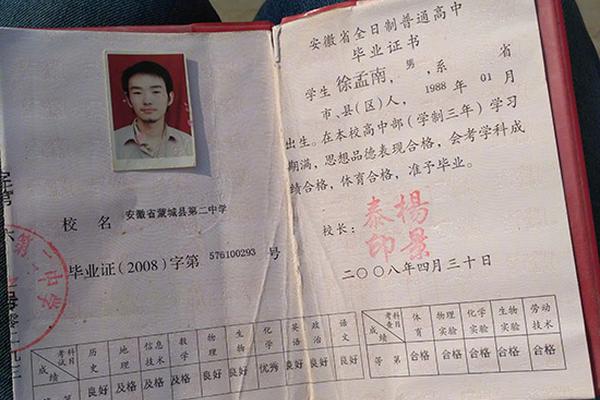 校名 安徽省蒙城县第二中学
毕业证(2008)字第 576100293 号
第二中学
考试科目 历史 地理 信息技术 数学 物理 生物 化学 英语 政治 语文
成绩 等第 良好 及格 及格 及格 良好 良好 优秀 良好 良好 良好
安徽省全日制普通高中
毕业证书
学生 徐孟南,男,系 省
市、县(区)人,1988 年 01 月
出生。在本校高中部(学制三年)学习
期满,思想品德表现合格,会考学科成
绩合格,体育合格,准予毕业。
校长: 杨景泰印
二〇〇八年四月三十日
考查科目 体育 物理实验 化学实验 生物实验 劳动技术
成绩 等第 合格 合格 合格 合格 合格